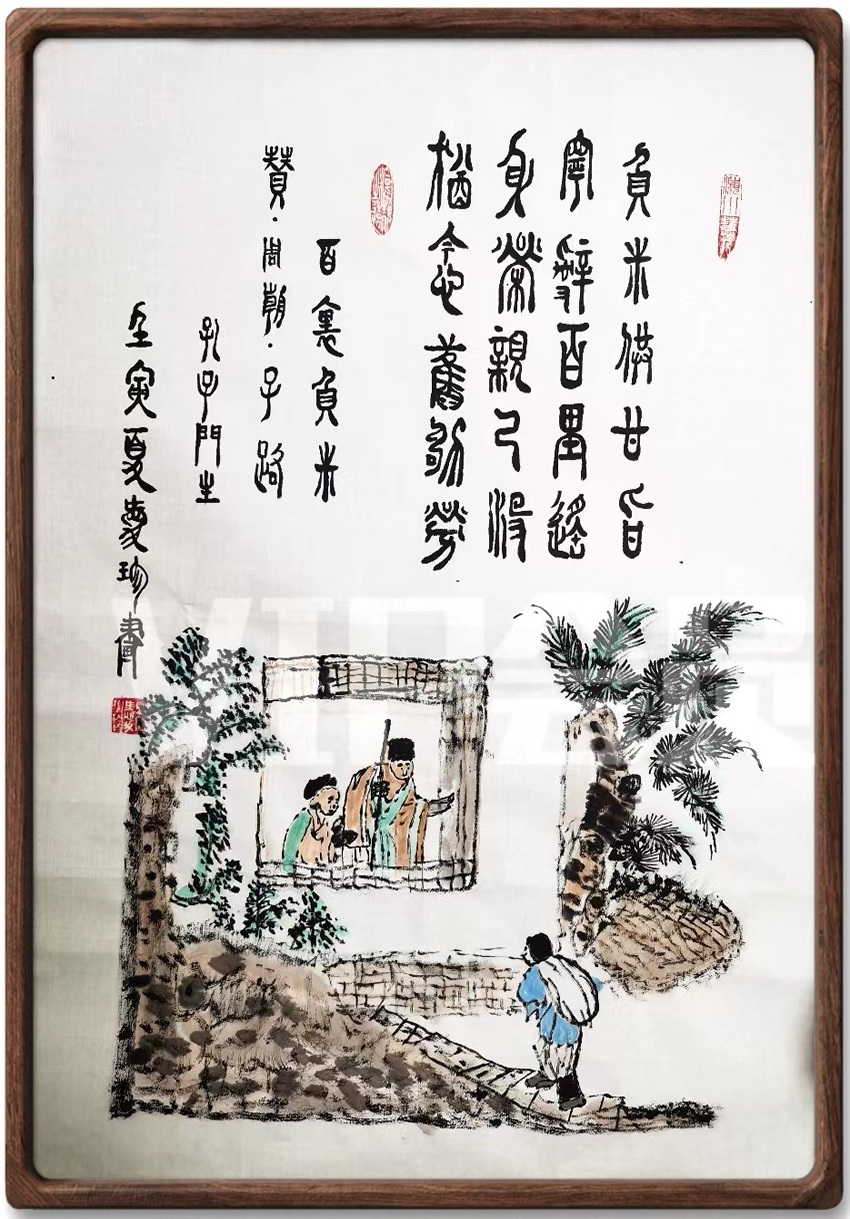 負米供甘旨
寧辭百里遙
身榮親已沒
猶念舊劬勞
百裏負米
贊·周朝·子路
孔子門生
壬寅夏珍書
VIP会员